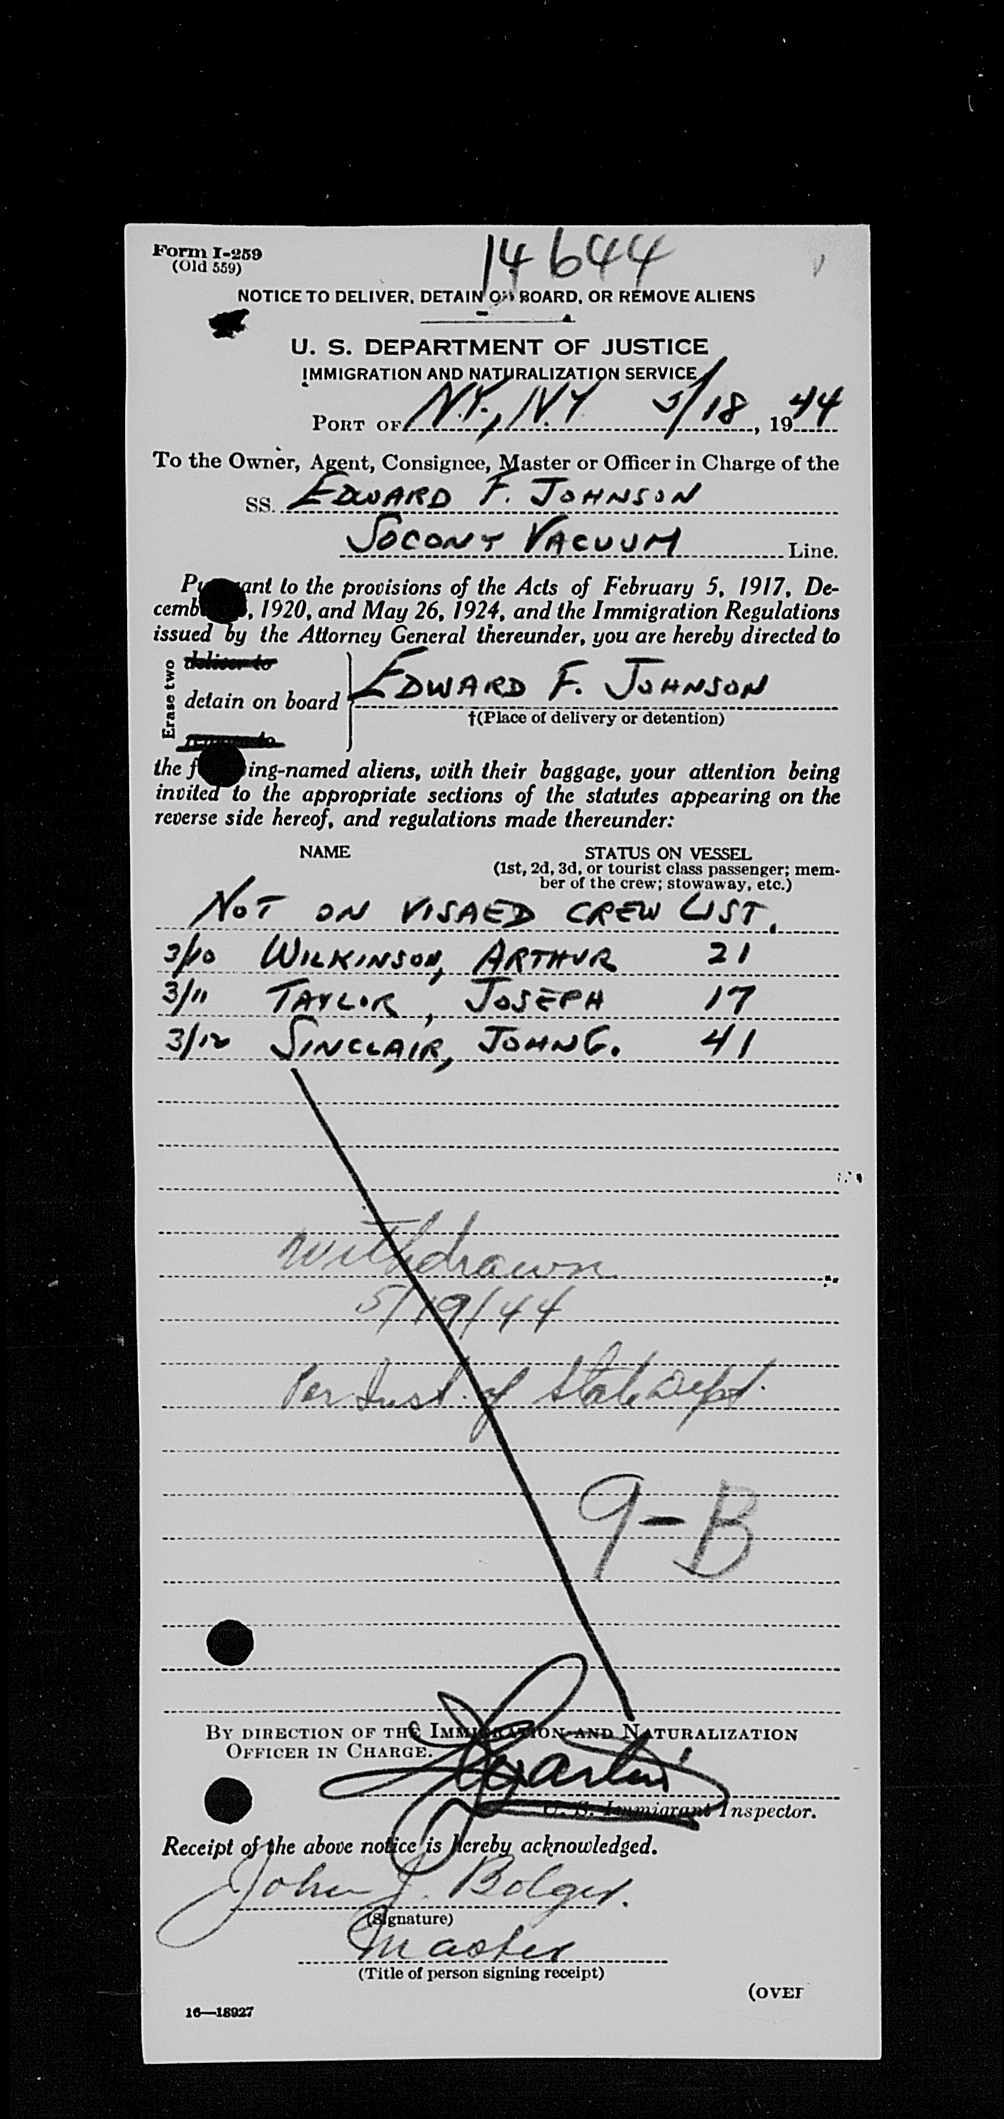 Form I-259
(Old 559)
14644
NOTICE TO DELIVER, DETAIN ON BOARD, OR REMOVE ALIENS
U. S. DEPARTMENT OF JUSTICE
IMMIGRATION AND NATURALIZATION SERVICE
PORT OF N.Y., N.Y. 5/18, 1944
To the Owner, Agent, Consignee, Master or Officer in Charge of the
SS. EDWARD F. JOHNSON
SOCONY VACUUM Line.
Pursuant to the provisions of the Acts of February 5, 1917, De-
cemb , 1920, and May 26, 1924, and the Immigration Regulations
issued by the Attorney General thereunder, you are hereby directed to
Erase two
deliver to
detain on board } EDWARD F. JOHNSON
remove to
†(Place of delivery or detention)
the following-named aliens, with their baggage, your attention being
invited to the appropriate sections of the statutes appearing on the
reverse side hereof, and regulations made thereunder:
NAME STATUS ON VESSEL
(1st, 2d, 3d, or tourist class passenger; mem-
ber of the crew; stowaway, etc.)
NOT ON VISAED CREW LIST.
3/10 WILKINSON, ARTHUR 21
3/11 TAYLOR, JOSEPH 17
3/12 SINCLAIR, JOHN G. 41
withdrawn
5/19/44
Per Inst. of State Dept.
9-B
BY DIRECTION OF THE IMMIGRATION AND NATURALIZATION
OFFICER IN CHARGE.
U. S. Immigrant Inspector.
Receipt of the above notice is hereby acknowledged.
John J. Bolger.
(Signature)
Master
(Title of person signing receipt)
(OVER
16—18927